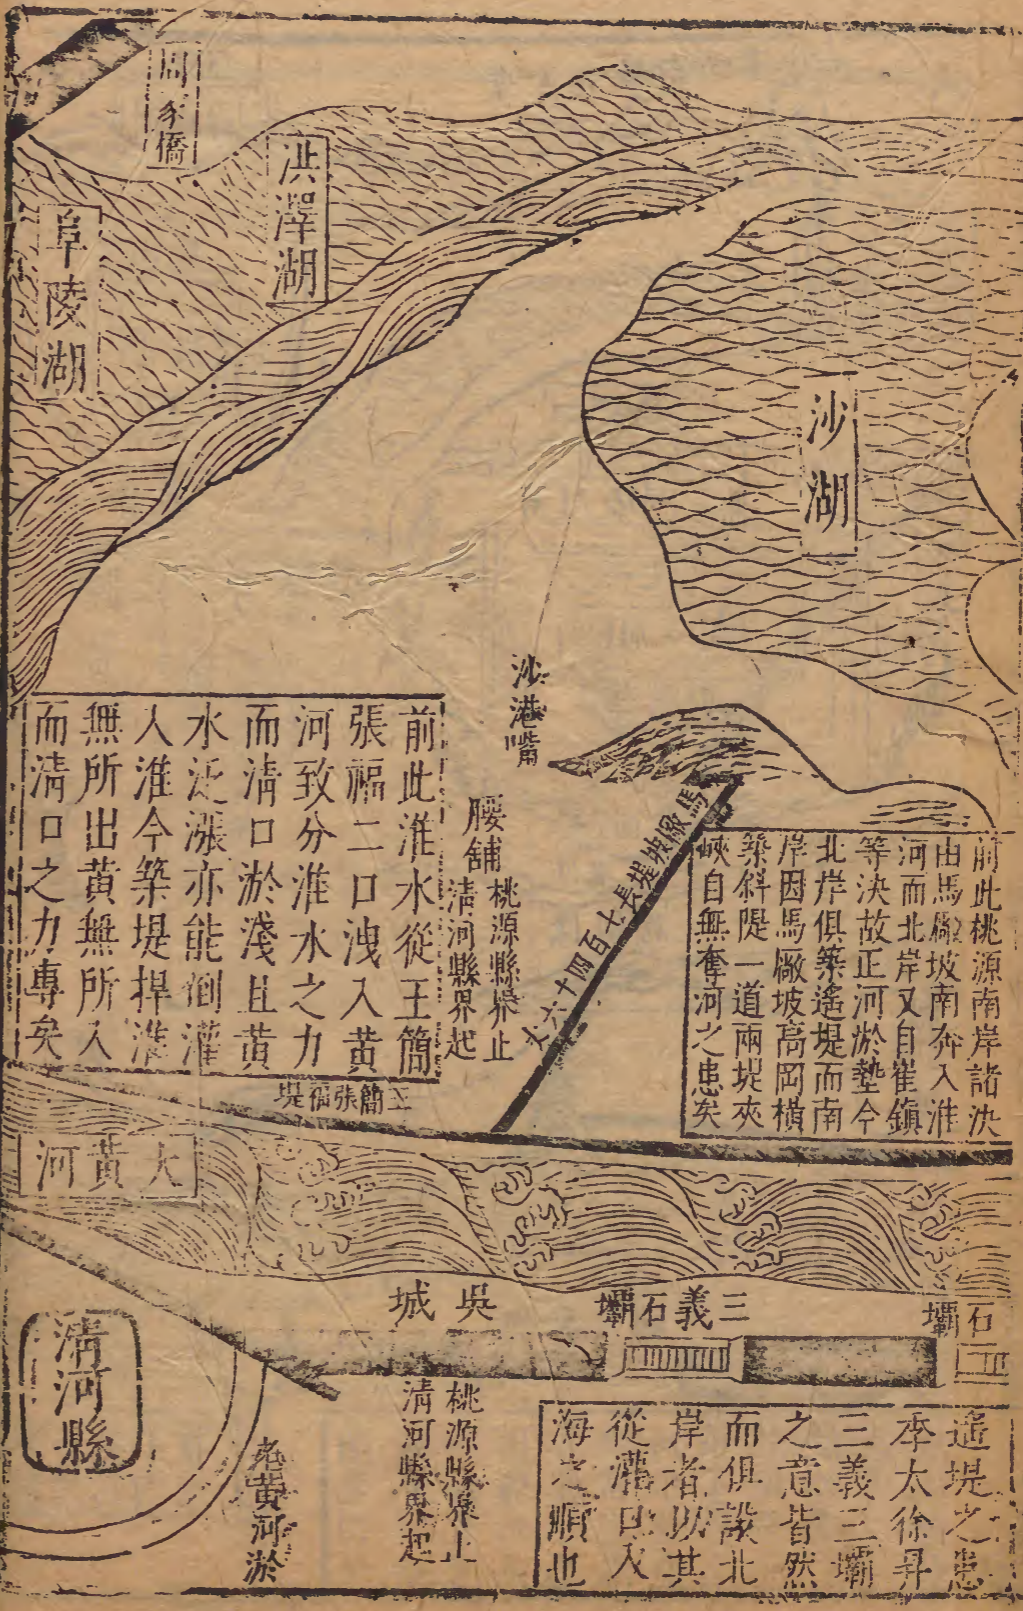 周家橋
洪澤湖
阜陵湖
沙湖
沙港嘴
馬廠坡堤長七百四十六丈
前此桃源南岸諸決
由馬廠坡南奔入淮
河而北岸又自崔鎮
等決故正河淤墊今
北岸俱築遙堤而南
岸因馬廠坡高岡橫
築斜隄一道兩堤夾
峽自無奪河之患矣
腰舖
桃源縣界止
清河縣界起
前此淮水從王簡
張福二口洩入黃
河致分淮水之力
而清口淤淺且黃
水泛漲亦能倒灌
入淮今築堤捍淮
無所出黃無所入
而清口之力專矣
王簡張福堤
大黃河
石壩
三義石壩
吳城
遙堤之患
季太徐昇
三義三壩
之意皆然
而俱設北
岸者助其
從灌口入
海之順也
桃源縣界止
清河縣界起
老黃河淤
清河縣